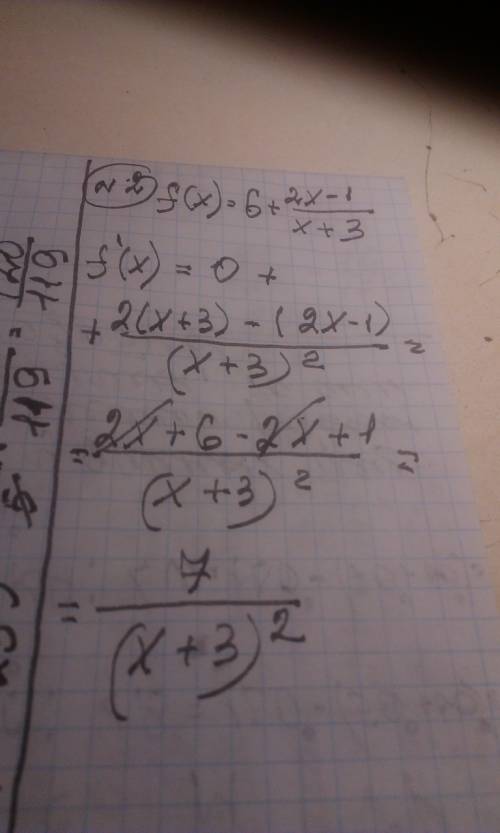 №2 f(x) = 6 + \frac{2x-1}{x+3}
f'(x) = 0 +
+ \frac{2(x+3) - (2x-1)}{(x+3)^2} =
= \frac{2x + 6 - 2x + 1}{(x+3)^2} =
= \frac{7}{(x+3)^2}
119 = \frac{120}{119}